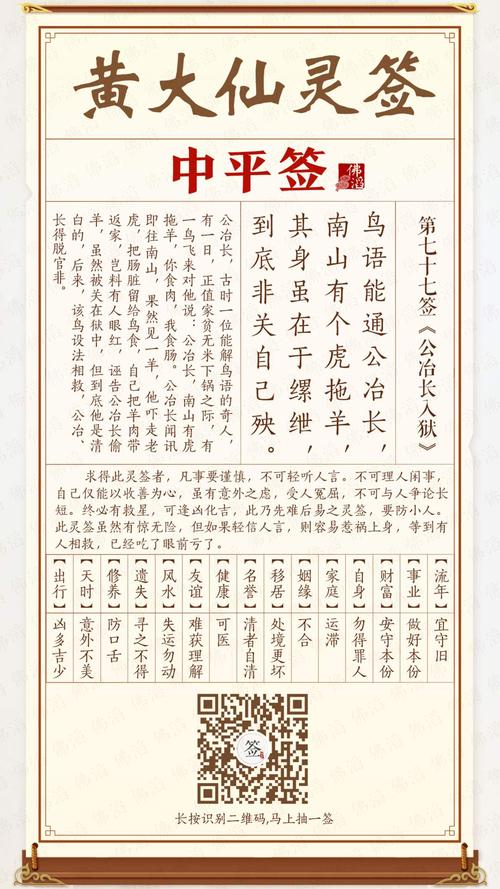 黄大仙灵签
中平签
佛滔
第七十七签《公冶长入狱》
鸟语能通公冶长，
南山有个虎拖羊，
其身虽在于缧绁，
到底非关自己殃。
公冶长，古时一位能解鸟语的奇人，
有一日，正值家贫无米下锅之际，有
一鸟飞来对他说：公冶长，南山有虎
拖羊，你食肉，我食肠。公冶长闻讯
即往南山，果然见一羊，他吓走老
虎，把肠脏留给鸟食，自己把羊肉带
返家，岂料有人眼红，诬告公冶长偷
羊，虽然被关在狱中，但到底他是清
白的，后来，该鸟设法相救，公冶、
长得脱官非。
求得此灵签者，凡事要谨慎，不可轻听人言。不可理人闲事，
自己仅能以收善为心，虽有意外之虑，受人冤屈，不可与人争论长
短。终必有救星，可逢凶化吉，此乃先难后易之灵签，要防小人。
此灵签虽然有惊无险，但如果轻信人言，则容易惹祸上身，等到有
人相救，已经吃了眼前亏了。
【流年】宜守旧
【事业】做好本份
【财富】安守本份
【自身】勿得罪人
【家庭】运滞
【姻缘】不合
【移居】处境更坏
【名誉】清者自清
【健康】可医
【友谊】难获理解
【风水】失运勿动
【遗失】寻之不得
【修养】防口舌
【天时】意外不美
【出行】凶多吉少
签
长按识别二维码,马上抽一签